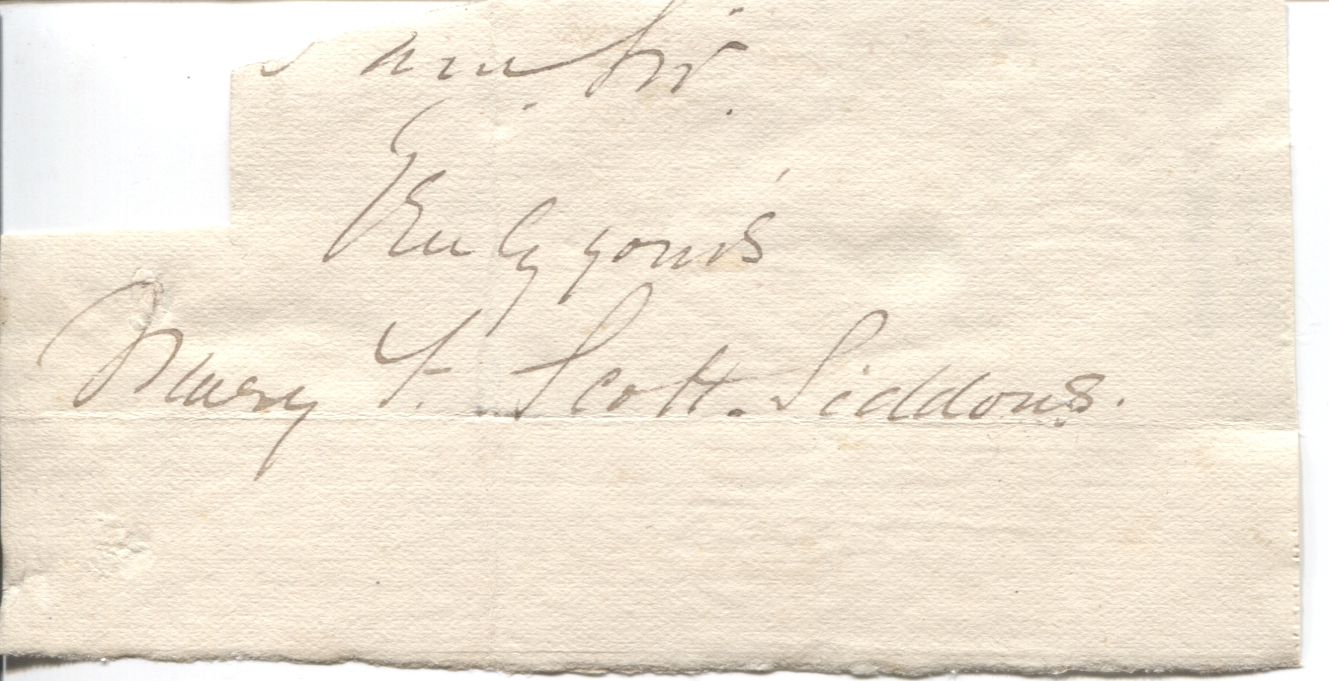 am Sir.
Truly yours
Mary F. Scott-Siddons.